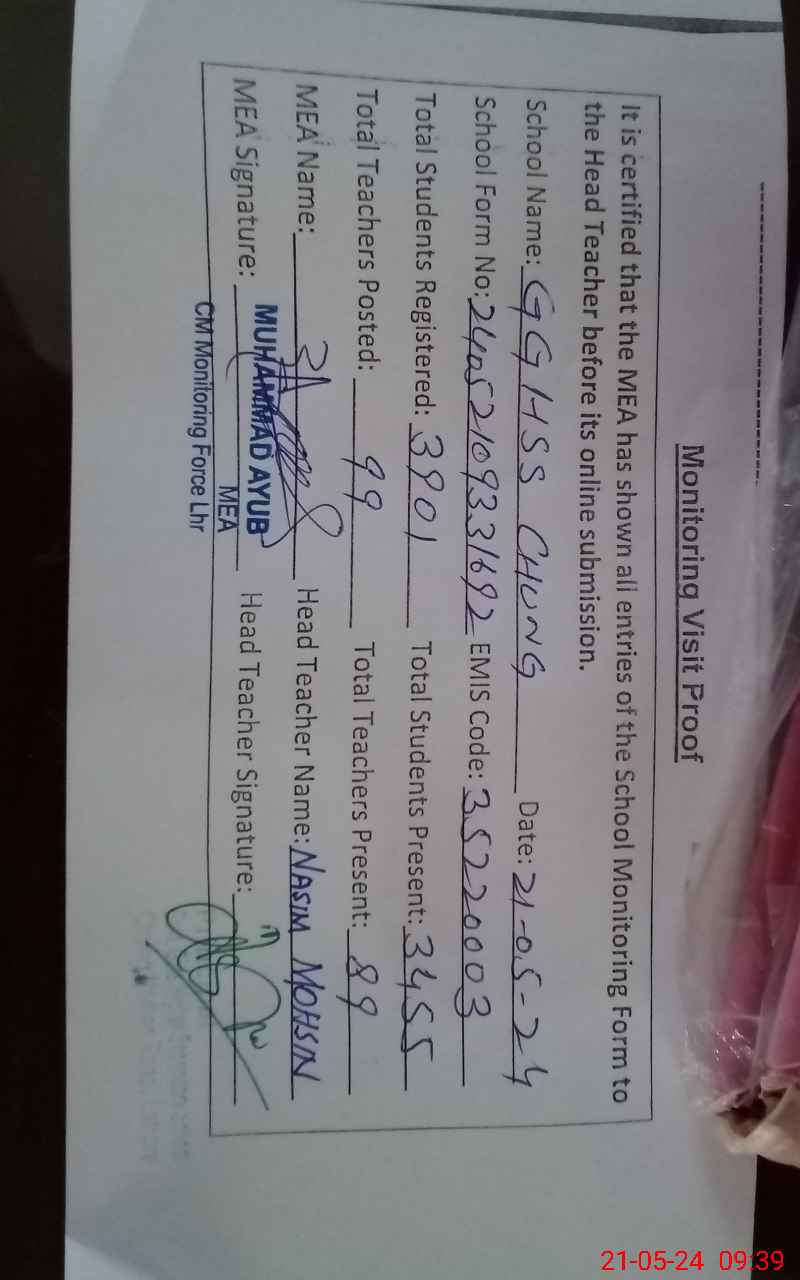 Monitoring Visit Proof
It is certified that the MEA has shown all entries of the School Monitoring Form to
the Head Teacher before its online submission.
School Name: GGHSS CHUNG Date: 21-05-24
School Form No: 24052109331692 EMIS Code: 35220003
Total Students Registered: 3901 Total Students Present: 3455
Total Teachers Posted: 99 Total Teachers Present: 89
MEA Name: Head Teacher Name: NASIM MOHSIN
MEA Signature: Head Teacher Signature:
MUHAMMAD AYUB
MEA
CM Monitoring Force Lhr
21-05-24 09:39